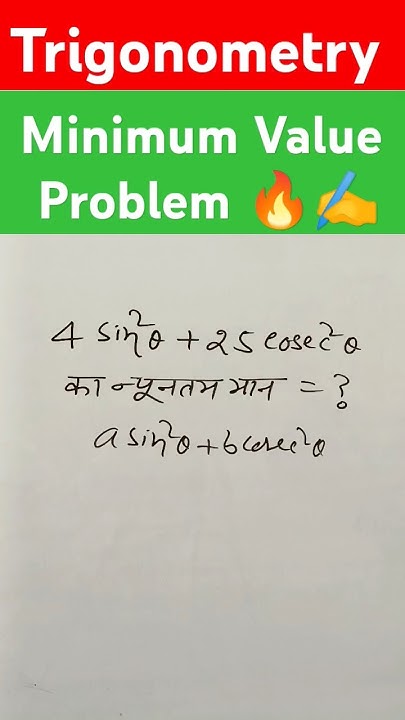 Trigonometry
Minimum Value
Problem 🔥✍️
4 sin²θ + 25 cosec²θ
का न्यूनतम मान = ?
a sin²θ + b cosec²θ